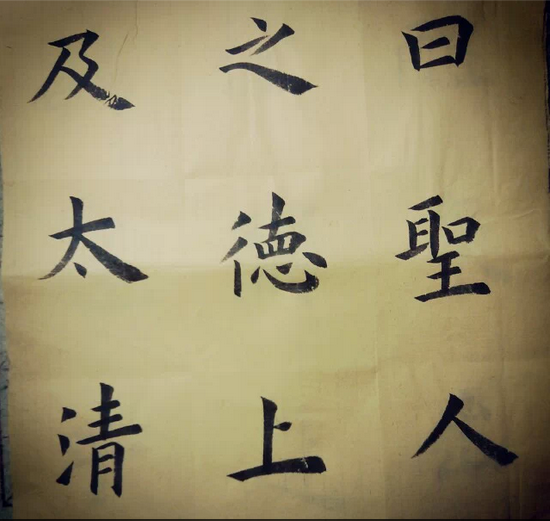 曰聖人
之德上
及太清